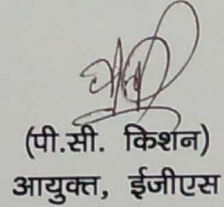 (पी.सी. किशन)
आयुक्त, ईजीएस